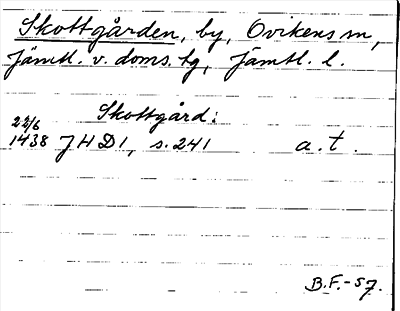 Skottgården, by, Ovikens sn,
Jämtl. v. doms. tg, Jämtl. l.
Skottgård:
22/6
1438 JHD1, s. 241 a. t.
B.F.-57.